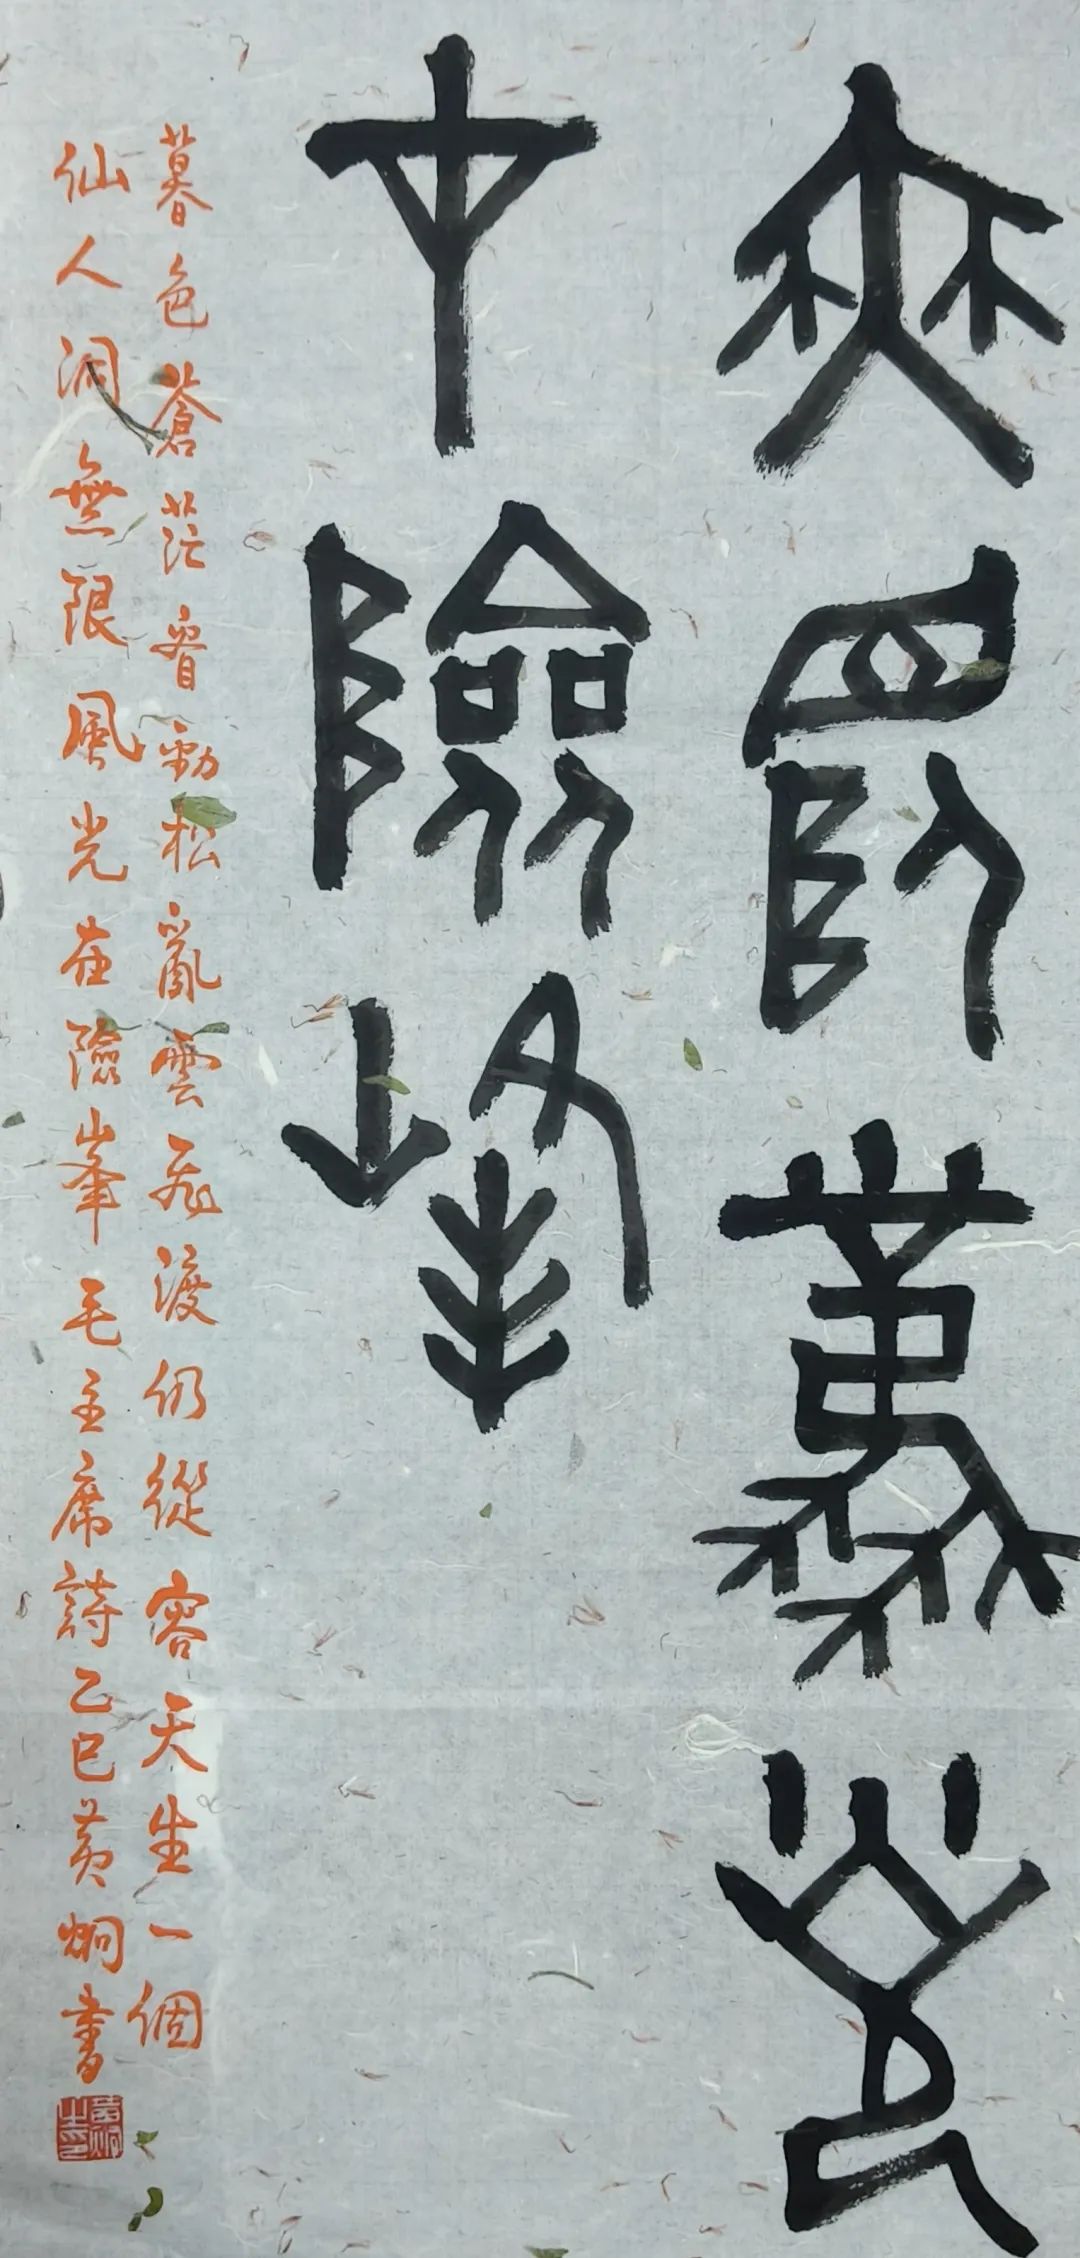 無限風光
在險峰
暮色蒼茫看勁松亂雲飛渡仍從容天生一個
仙人洞無限風光在險峯毛主席詩乙巳黃炯書